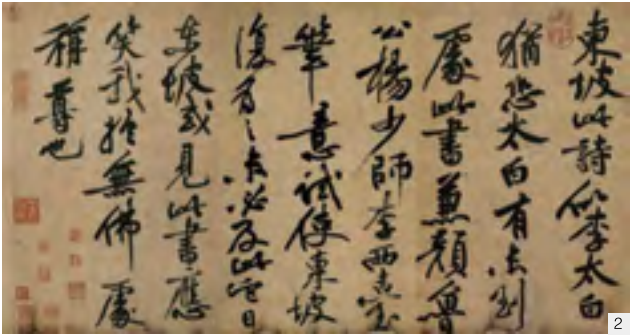 東坡此詩似李太白
猶恐太白有未到
處此書兼顏魯
公楊少師李西臺
筆意試使東坡
復為之未必及此它日
東坡或見此書應
笑我於無佛處
稱尊也
2